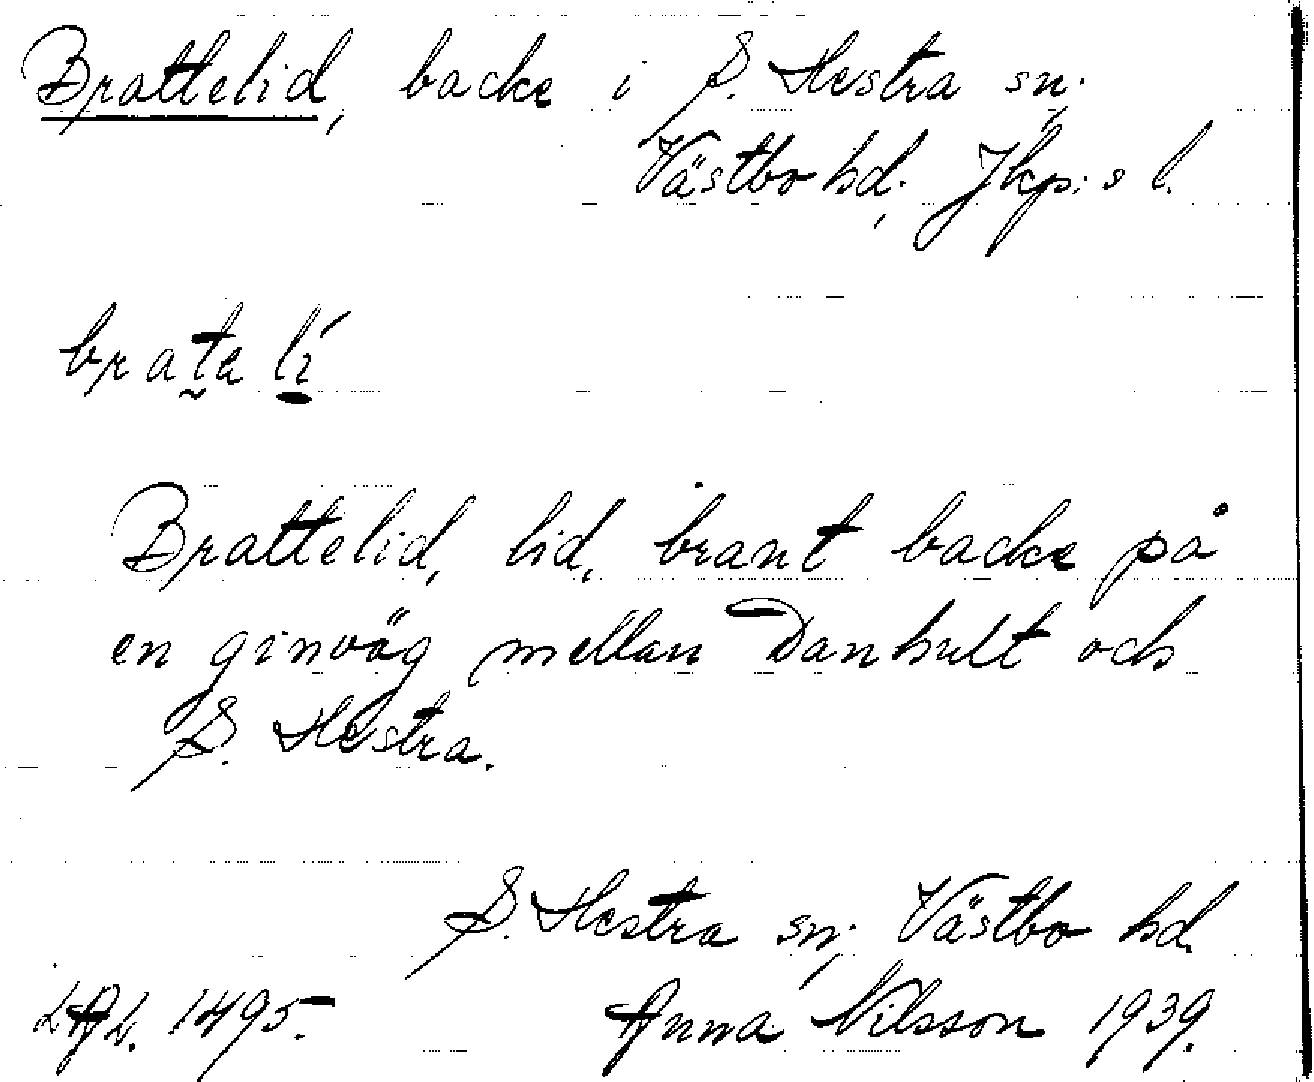 Brattelid, backe i S. Hestra sn;
Västbo hd, Jkp:s l.
brata lí
Brattelid, lid, brant backe på
en ginväg mellan Danhult och
S. Hestra.
S. Hestra sn; Västbo hd.
LAL. 1495. Anna Nilsson 1939.